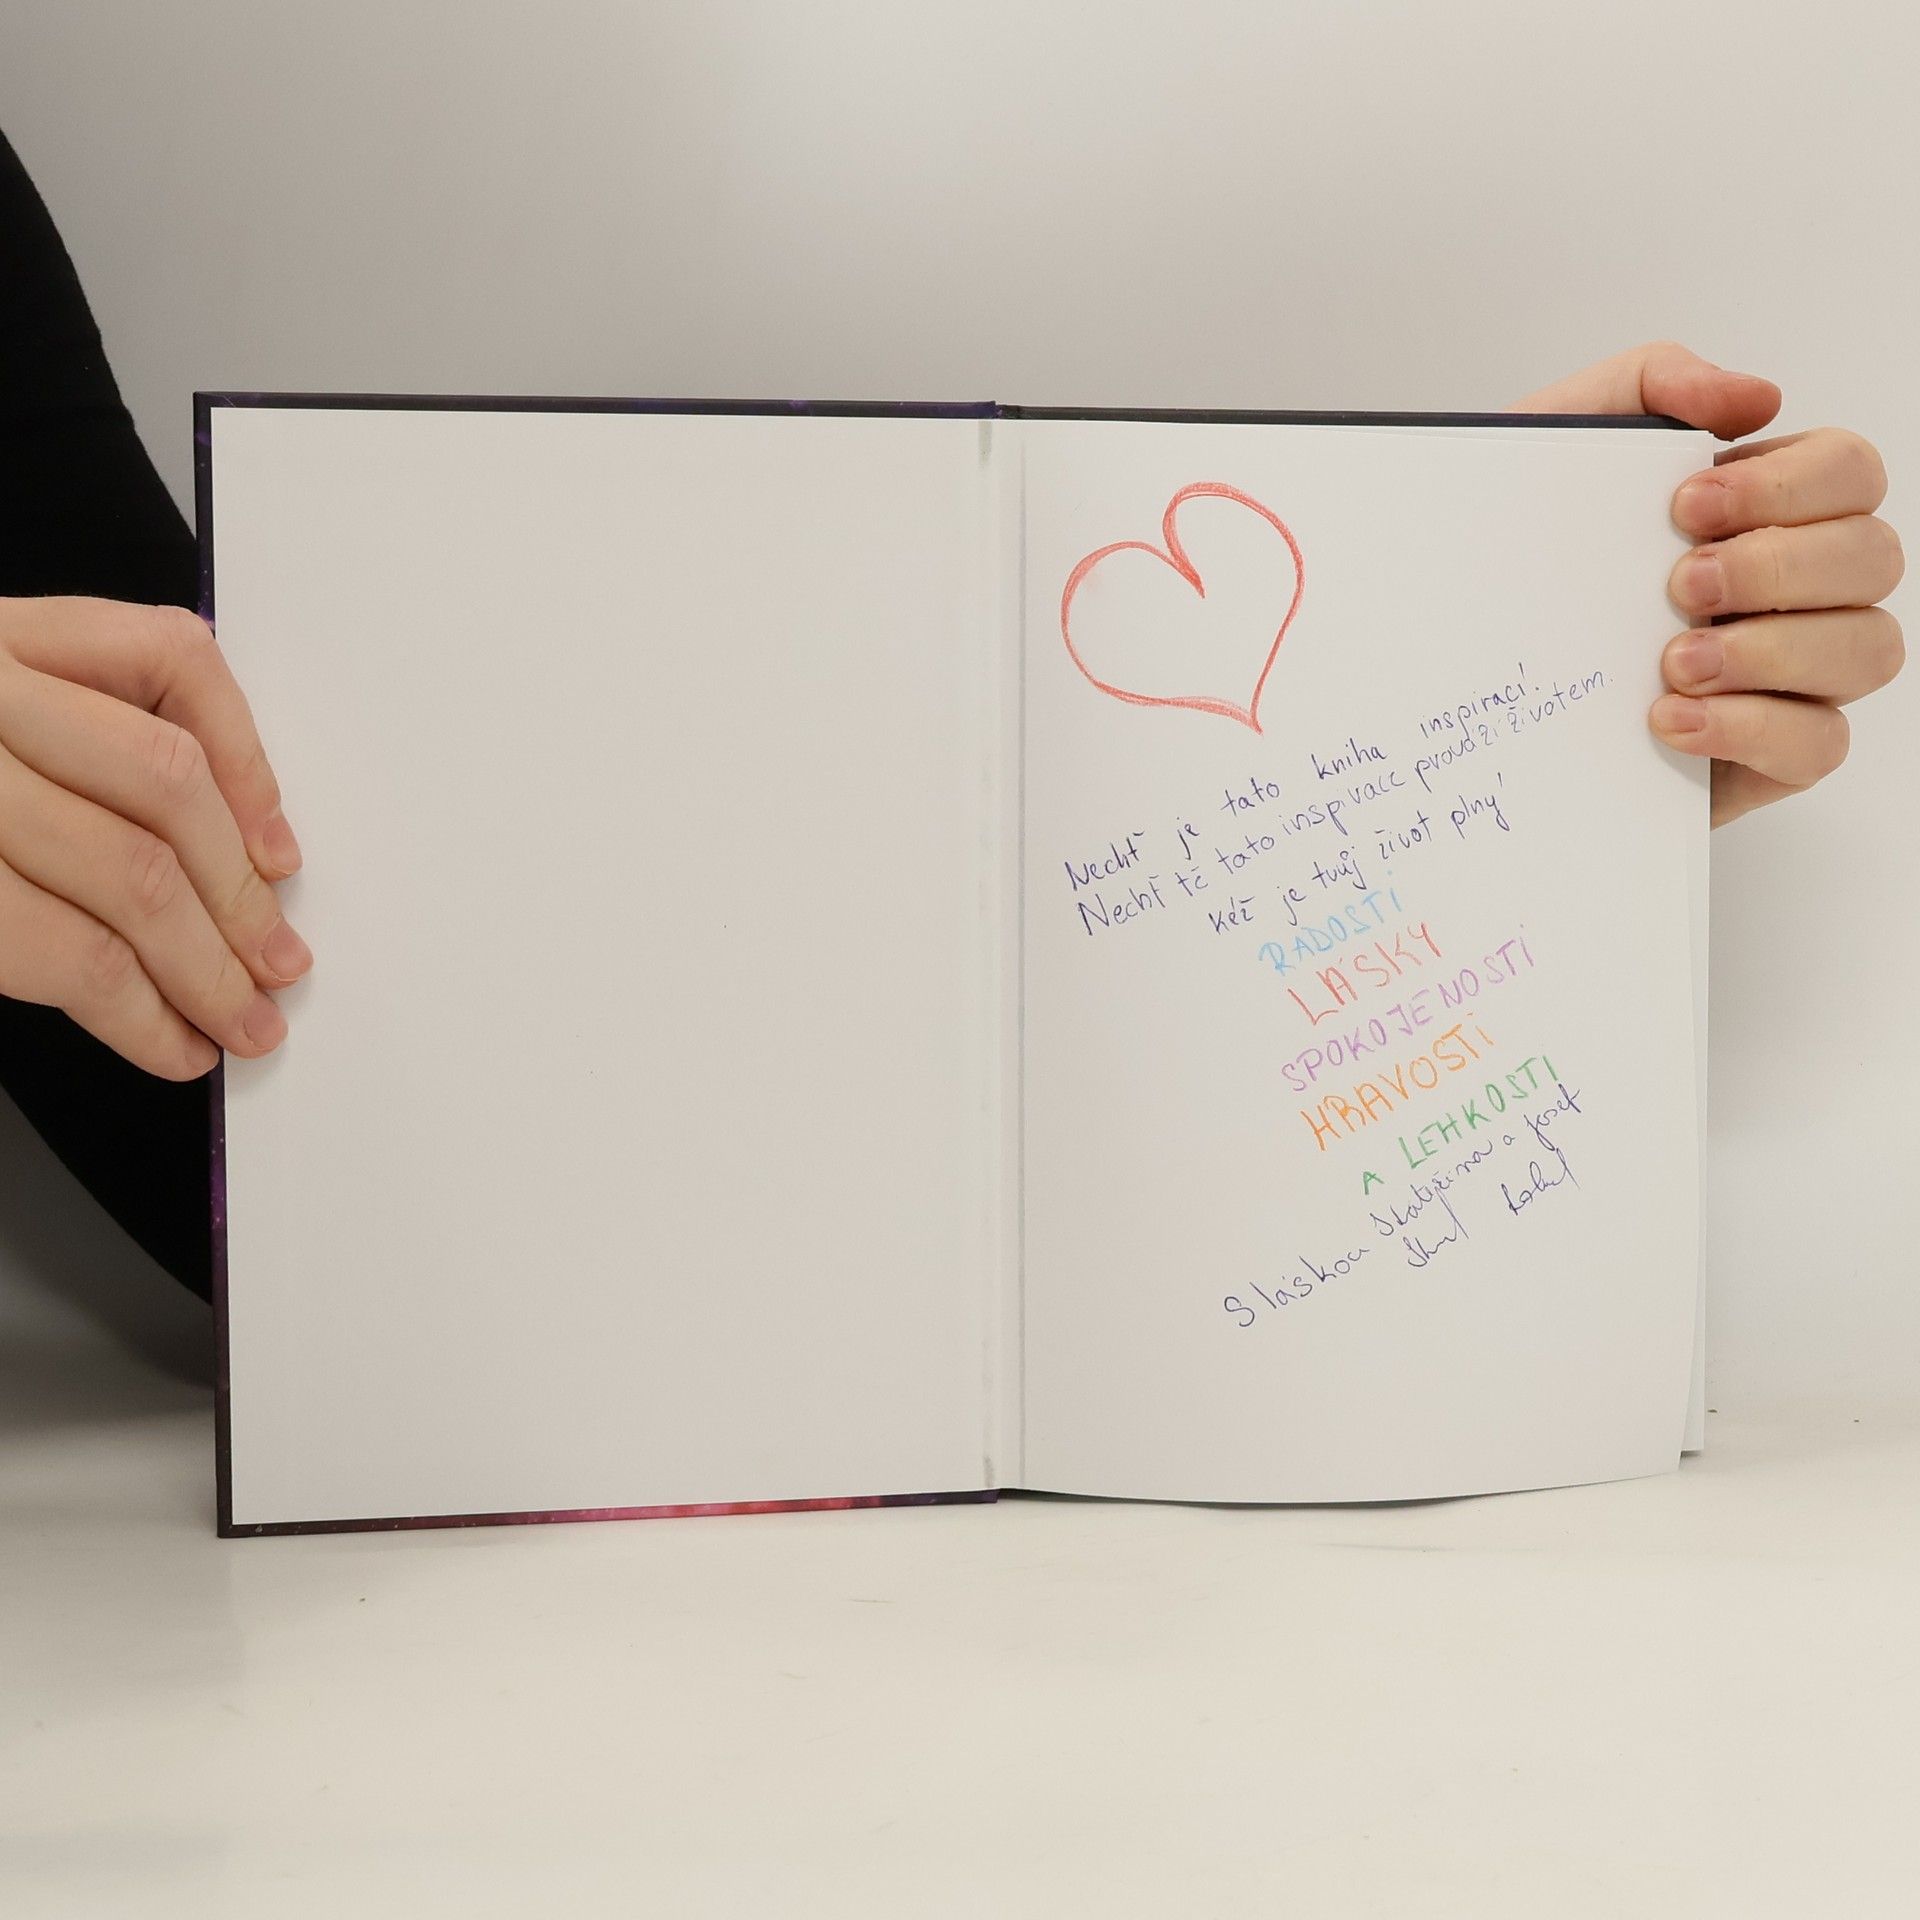 Nechť je tato kniha inspirací.
Nechť tě tato inspirace provází životem.
Kéž je tvůj život plný
RADOSTI
LÁSKY
SPOKOJENOSTI
HRAVOSTI
A LEHKOSTI
S láskou a Josef